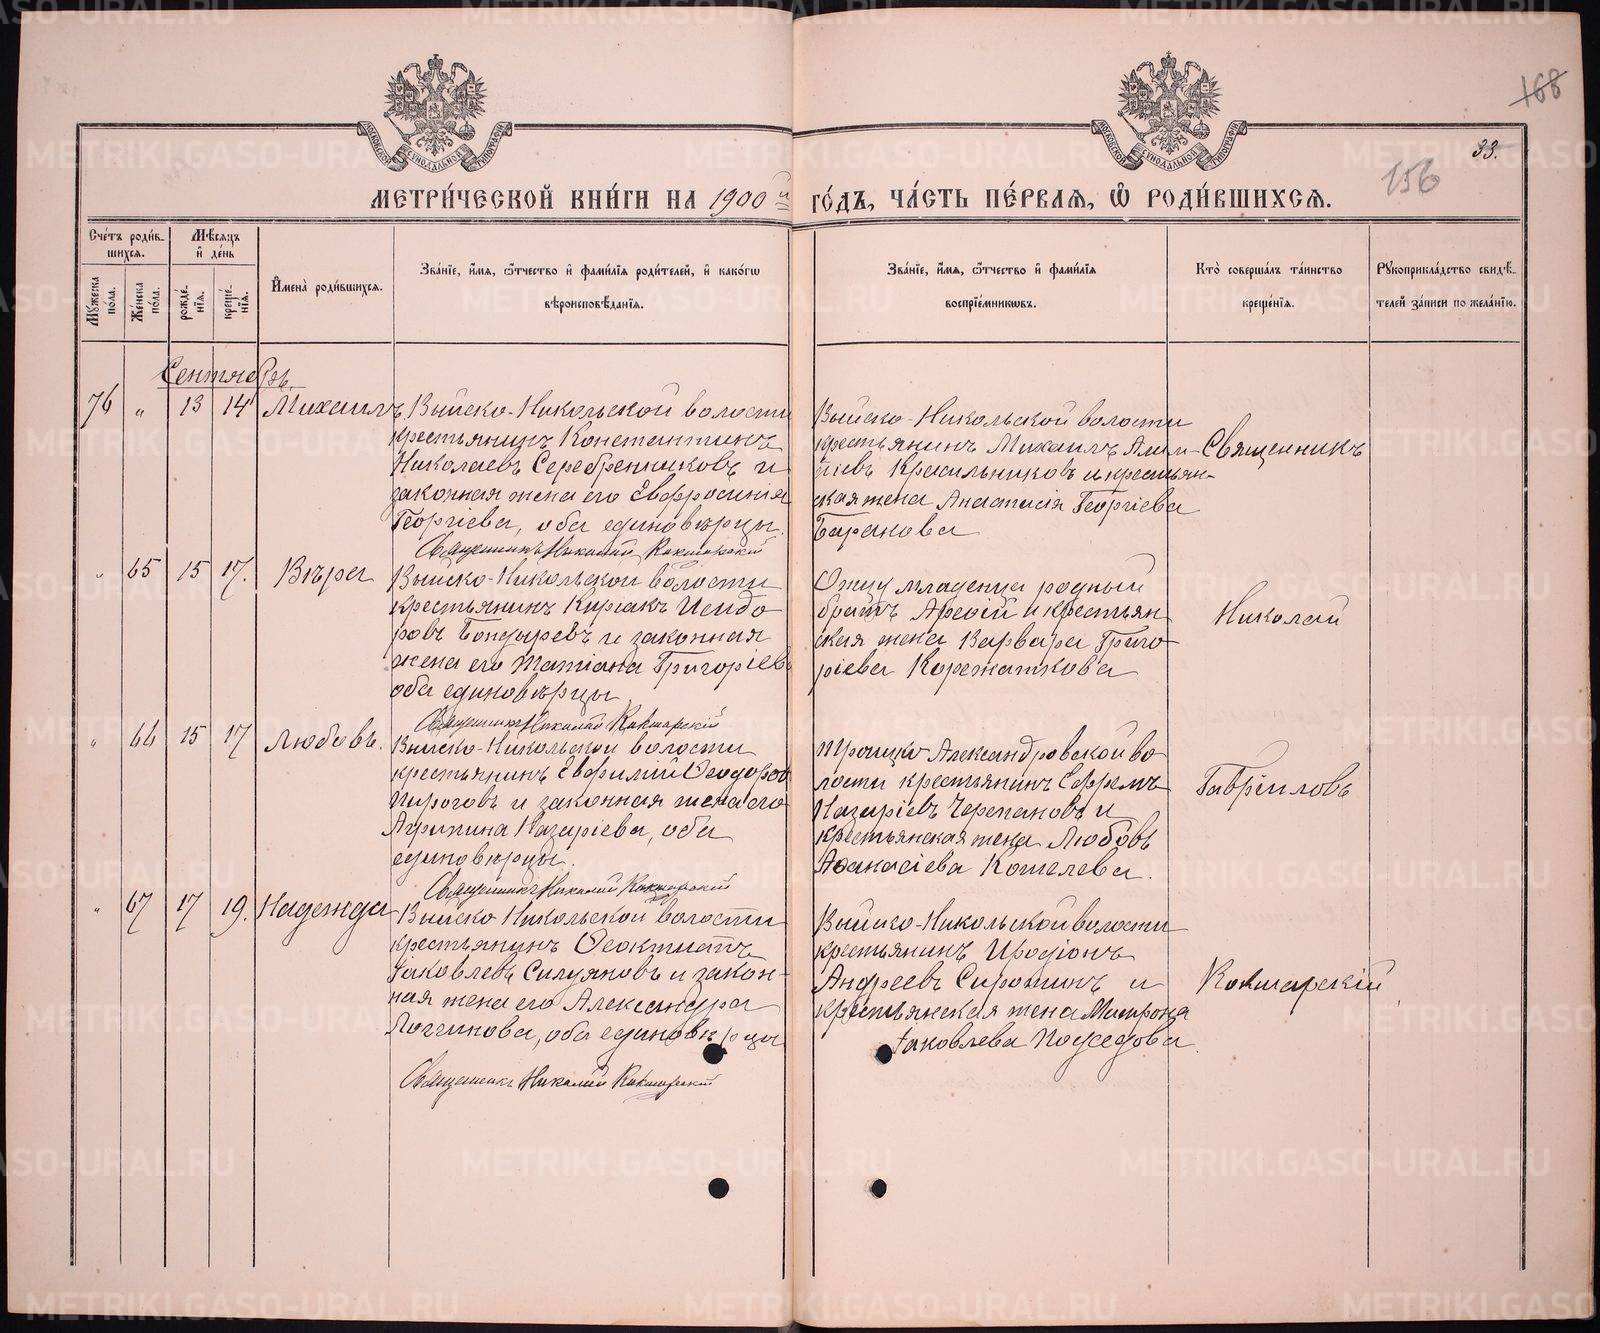 168
33.
156
МЕТРИ́ЧЕСКОЙ КНИ́ГИ НА 1900й ГО́ДЪ, ЧА́СТЬ ПЕ́РВАѦ, Ѿ РОДИ́ВШИХСѦ.
Сче́тъ роди́вшихсѧ.
Мꙋжеска по́ла.
Женска по́ла.
Мѣ́сѧцъ и҆ де́нь
рожде́нїѧ.
креще́нїѧ.
И҆мена̀ роди́вшихсѧ.
Зва́нїе, и҆́мѧ, ѻ҆́тчество и҆ фами́лїѧ роди́телей, и҆ како́гѡ
вѣроисповѣ́данїѧ.
Зва́нїе, и҆́мѧ, ѻ҆́тчество и҆ фами́лїѧ
воспрїе́мникѡвъ.
Кто̀ соверша́лъ та́инство
креще́нїѧ.
Рꙋкоприкла́дство свидѣ́-
телей за́писи по жела́нїю.
Сентябрь.
76 „ 13 14 Михаилъ
Выйско-Никольской волости
крестьянинъ Константинъ
Николаевъ Серебренниковъ и
законная жена его Евфросинія
Георгіева, оба единовѣрцы.
Священникъ Николай Кокшарскій
Выйско-Никольской волости
крестьянинъ Михаилъ
Красильниковъ и крестьян-
ская жена Анастасія Георгіева
Баранова
Священникъ
„ 65 15 17. Вѣра
Выйско-Никольской волости
крестьянинъ Киріакъ Исидо
ровъ Бондаревъ и законная
жена его Татіана Григоріев
оба единовѣрцы
Священникъ Николай Кокшарскій
Отцу младенца родный
братъ и крестьян
ская жена Варвара Григо-
ріева Коржаткова
Николай
„ 66 15 17 Любовь.
Выйско-Никольской волости
крестьянинъ Евфимій Ѳеодоров
Пироговъ и законная жена его
Агрипина Назаріева, оба
единовѣрцы.
Священникъ Николай Кокшарскій
Троицко Александровской во
лости крестьянинъ Ефремъ
Назаріевъ Черепановъ и
крестьянская жена Любовь
Аѳанасіева Кошелева.
Гавріиловъ
„ 67 17 19. Надежда
Выйско Никольской волости
крестьянинъ Ѳеоктистъ
Іаковлевъ Силуяновъ и закон-
ная жена его Александра
Логгинова, оба единовѣрцы
Священникъ Николай Кокшарскій
Выйско-Никольской волости
крестьянинъ Иродіонъ
Андреевъ Сиротинъ и
крестьянская жена Матрона
Іаковлева
Кокшарскій